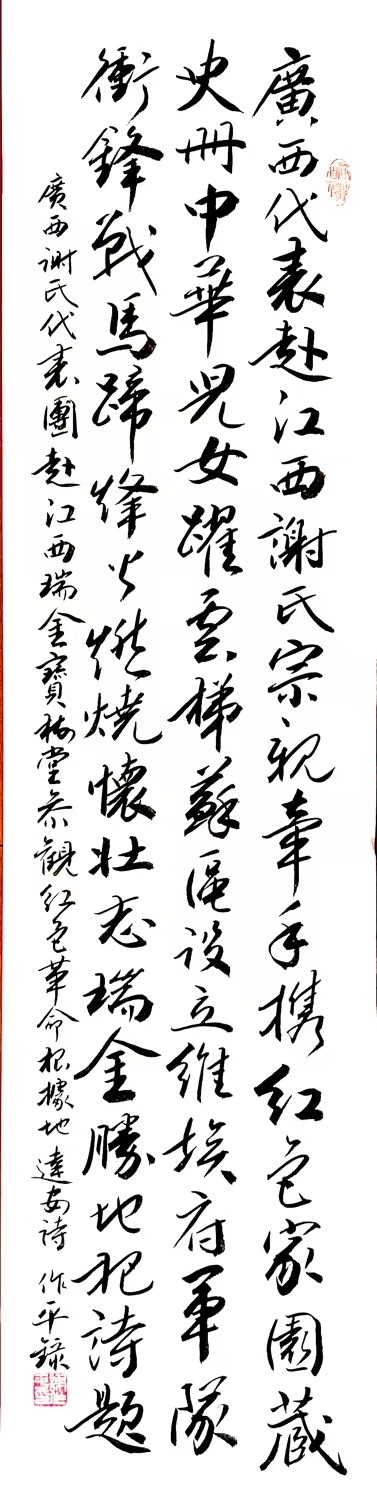 廣西代表赴江西謝氏宗親牽手攜紅色家園藏
史冊中華兒女躍雲梯蘇區設立維埃府軍隊
衝鋒戰馬蹄烽火燃燒懷壯志瑞金勝地把詩題
廣西謝氏代表團赴江西瑞金寶樹堂參觀紅色革命根據地 達安詩 作平錄